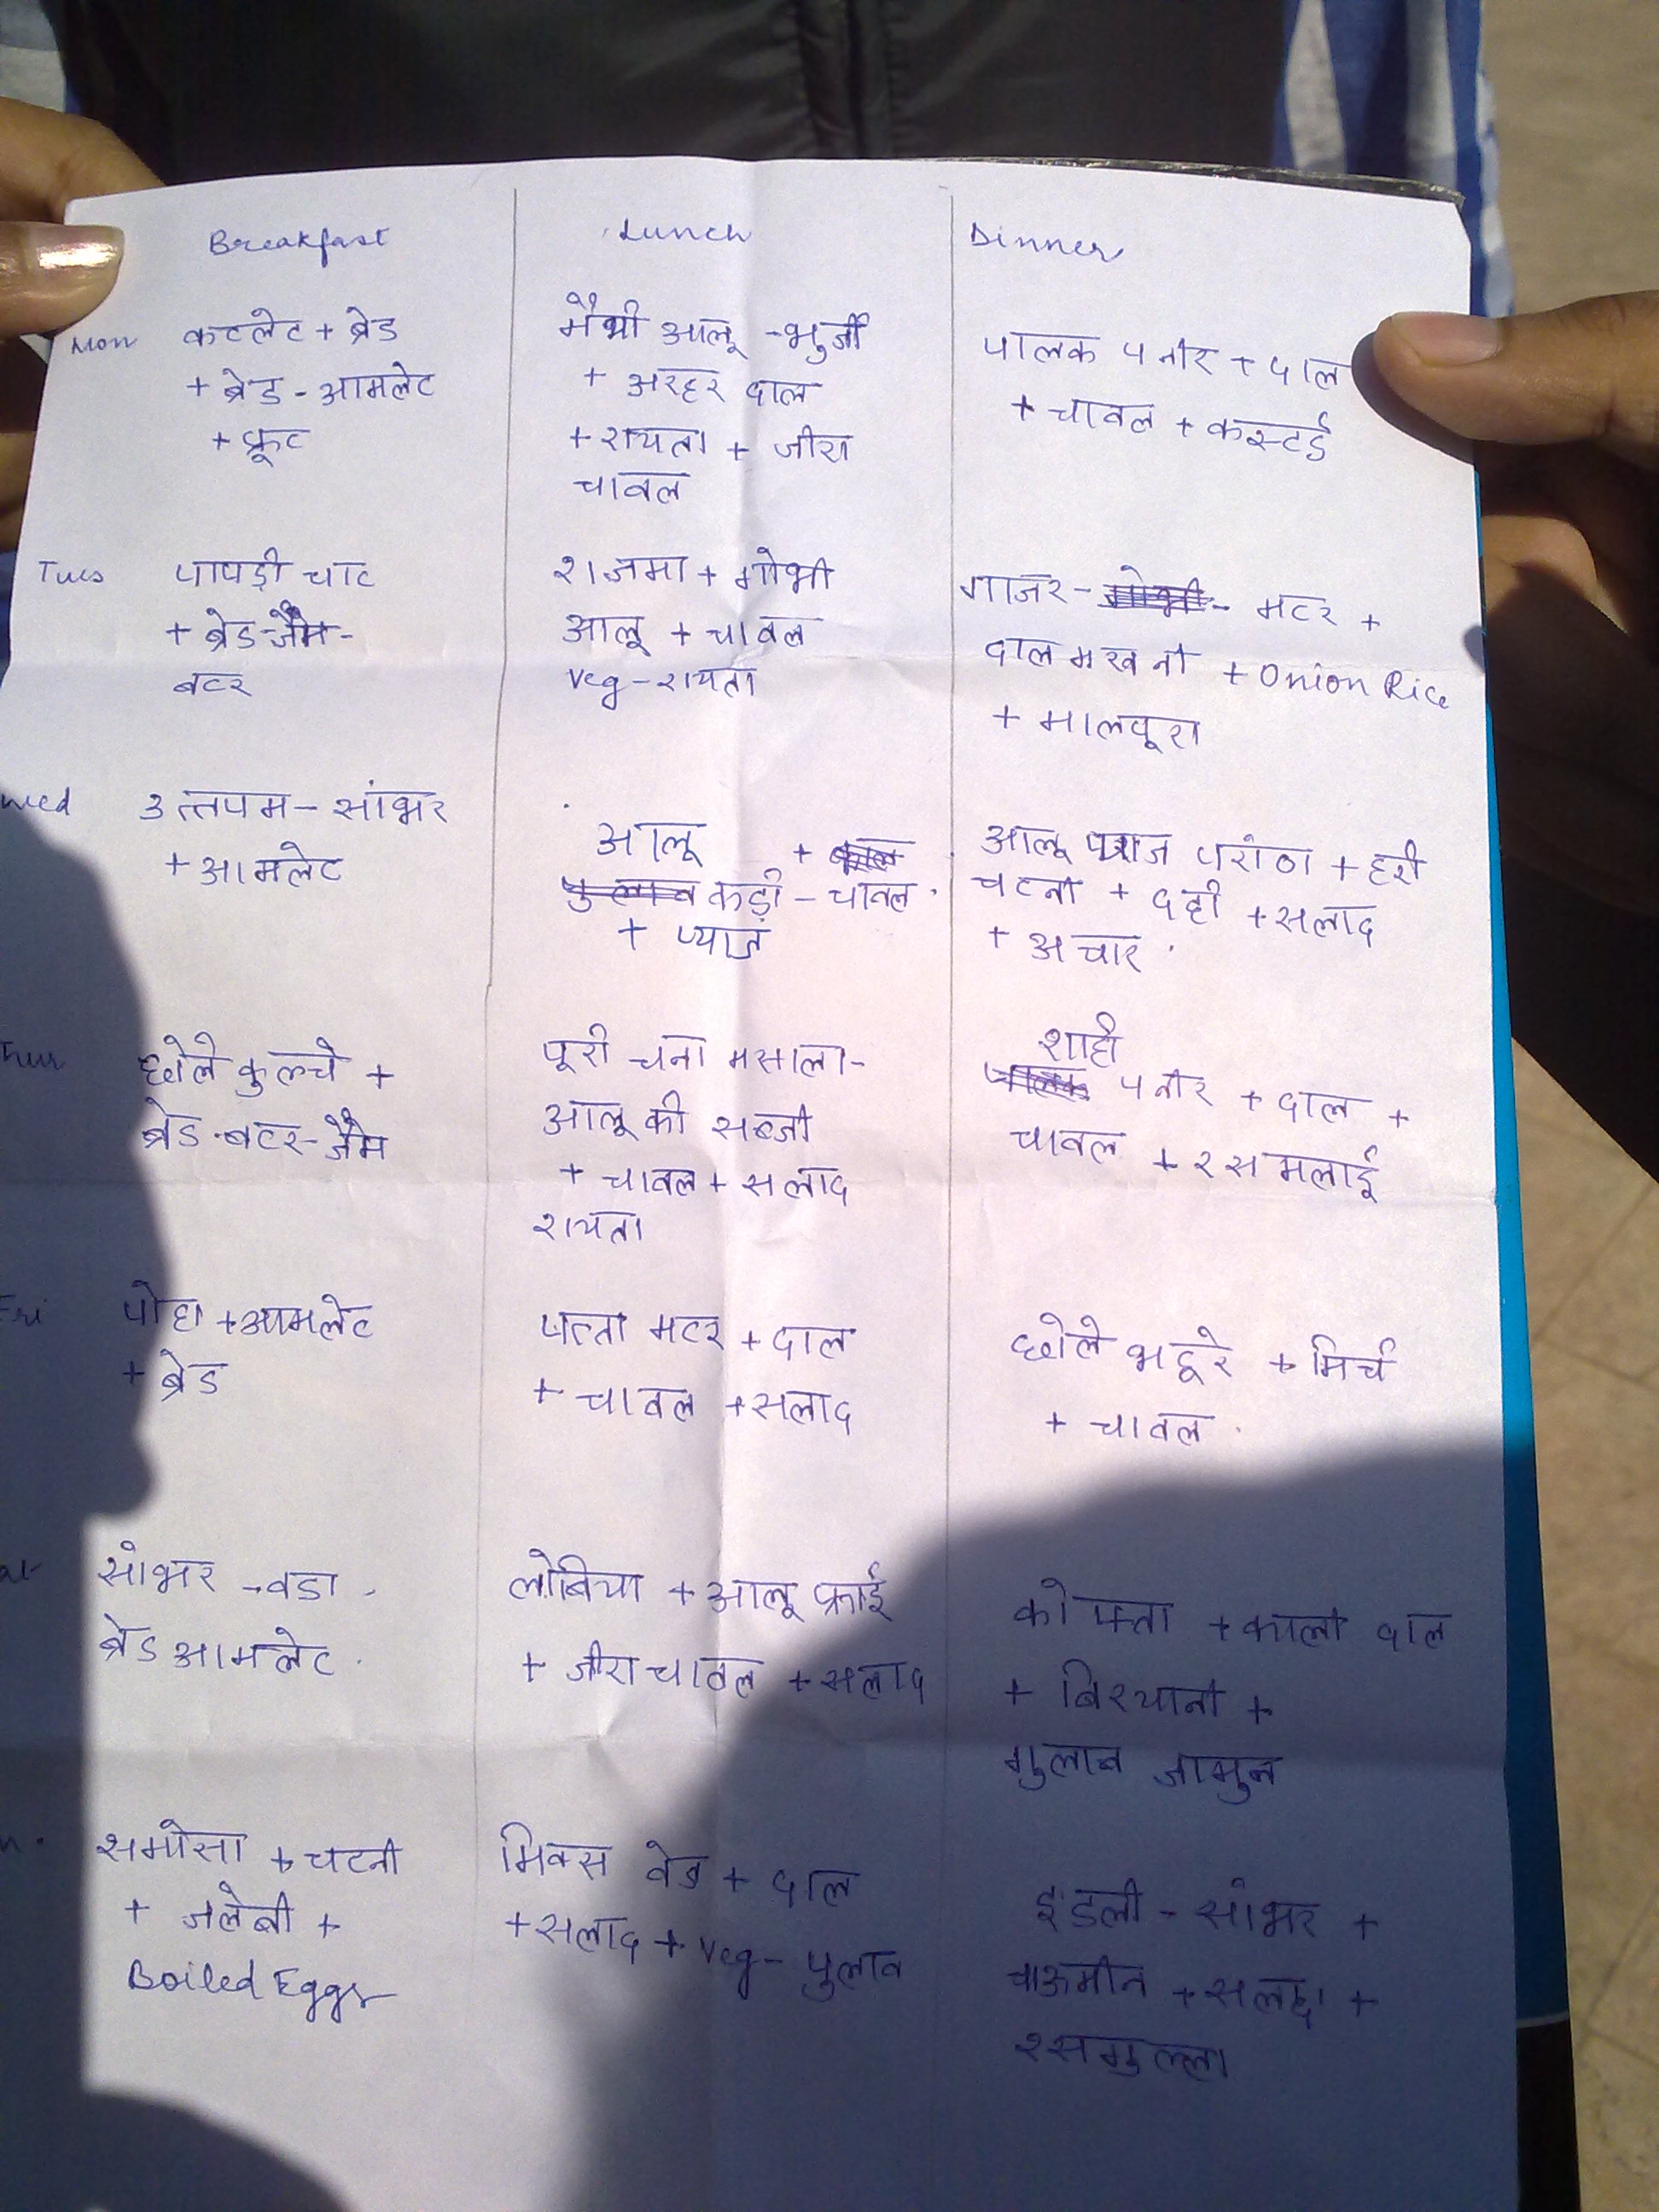 Breakfast Lunch Dinner
Mon
कटलेट + ब्रेड
+ ब्रेड - आमलेट
+ फ्रूट
मैथी आलू - भुर्जी
+ अरहर दाल
+ रायता + जीरा
चावल
पालक पनीर + दाल
+ चावल + कस्टर्ड
Tues
पापड़ी चाट
+ ब्रेड-जैम-
बटर
राजमा + गोभी
आलू + चावल
Veg - रायता
गाजर - गोभी - मटर +
दाल मखनी + Onion Rice
+ मालपूरा
Wed
उत्तपम - सांभर
+ आमलेट
आलू +
पुलाव कड़ी - चावल
+ प्याज़
आलू प्याज परांठा + हरी
चटनी + दही + सलाद
+ अचार
Thur
छोले कुल्चे +
ब्रेड-बटर-जैम
पूरी चना मसाला-
आलू की सब्जी
+ चावल + सलाद
रायता
शाही
पालक पनीर + दाल +
चावल + रसमलाई
Fri
पोहा + आमलेट
+ ब्रेड
पत्ता मटर + दाल
+ चावल + सलाद
छोले भटूरे + मिर्च
+ चावल
at
सांभर - वडा
ब्रेड आमलेट
लोबिया + आलू फ्राई
+ जीरा चावल + सलाद
कोफ्ता + काली दाल
+ बिरयानी +
गुलाब जामुन
n.
समोसा + चटनी
+ जलेबी +
Boiled Eggs
मिक्स वेज + दाल
+ सलाद + Veg - पुलाव
इडली - सांभर +
चाऊमीन + सलाद +
रसगुल्ला